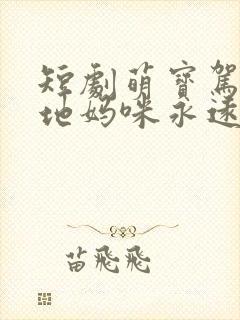 短劇萌寶駕
地媽咪永遠
苗飛飛